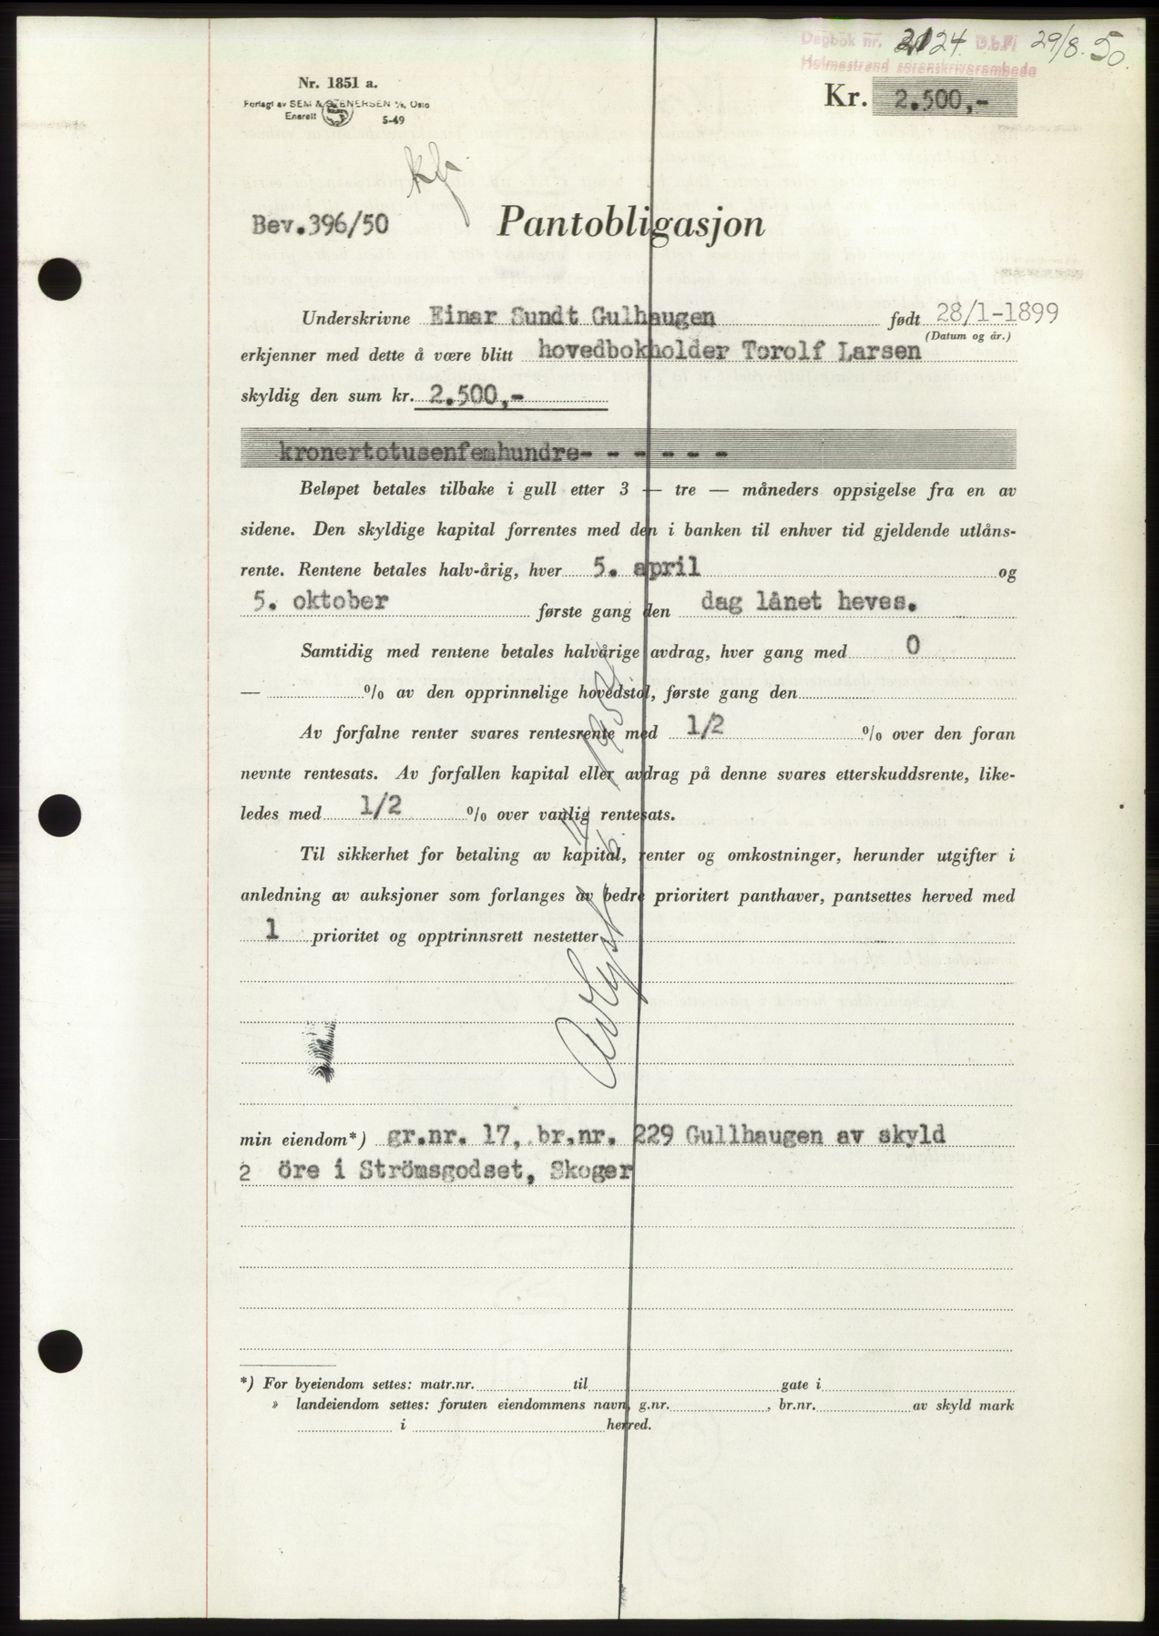 Dagbok nr. 2124 29/8. 50.
Holmestrand sorenskriverembede
Nr. 1851 a.
Forlagt av SEM & STENERSEN A/S, Oslo
Enerett 5-49
Kr. 2.500,-
Bev.396/50
Pantobligasjon
Underskrivne Einar Sundt Gulhaugen født 28/1-1899
(Datum og år.)
erkjenner med dette å være blitt hovedbokholder Torolf Larsen
skyldig den sum kr. 2.500,-
kronertotusenfemhundre- - - - - -
Beløpet betales tilbake i gull etter 3 — tre — måneders oppsigelse fra en av
sidene. Den skyldige kapital forrentes med den i banken til enhver tid gjeldende utlåns-
rente. Rentene betales halv-årig, hver 5. april og
5. oktober første gang den dag lånet heves.
Samtidig med rentene betales halvårige avdrag, hver gang med 0
— % av den opprinnelige hovedstol, første gang den
Av forfalne renter svares rentesrente med 1/2 % over den foran
nevnte rentesats. Av forfallen kapital eller avdrag på denne svares etterskuddsrente, like-
ledes med 1/2 % over vanlig rentesats.
Til sikkerhet for betaling av kapital, renter og omkostninger, herunder utgifter i
anledning av auksjoner som forlanges av bedre prioritert panthaver, pantsettes herved med
1 prioritet og opptrinnsrett nestetter
Avlyst
min eiendom*) gr.nr. 17, br.nr. 229 Gullhaugen av skyld
2 öre i Strömsgodset, Skoger
*) For byeiendom settes: matr.nr. til gate i
» landeiendom settes: foruten eiendommens navn, g.nr. , br.nr. av skyld mark
i herred.